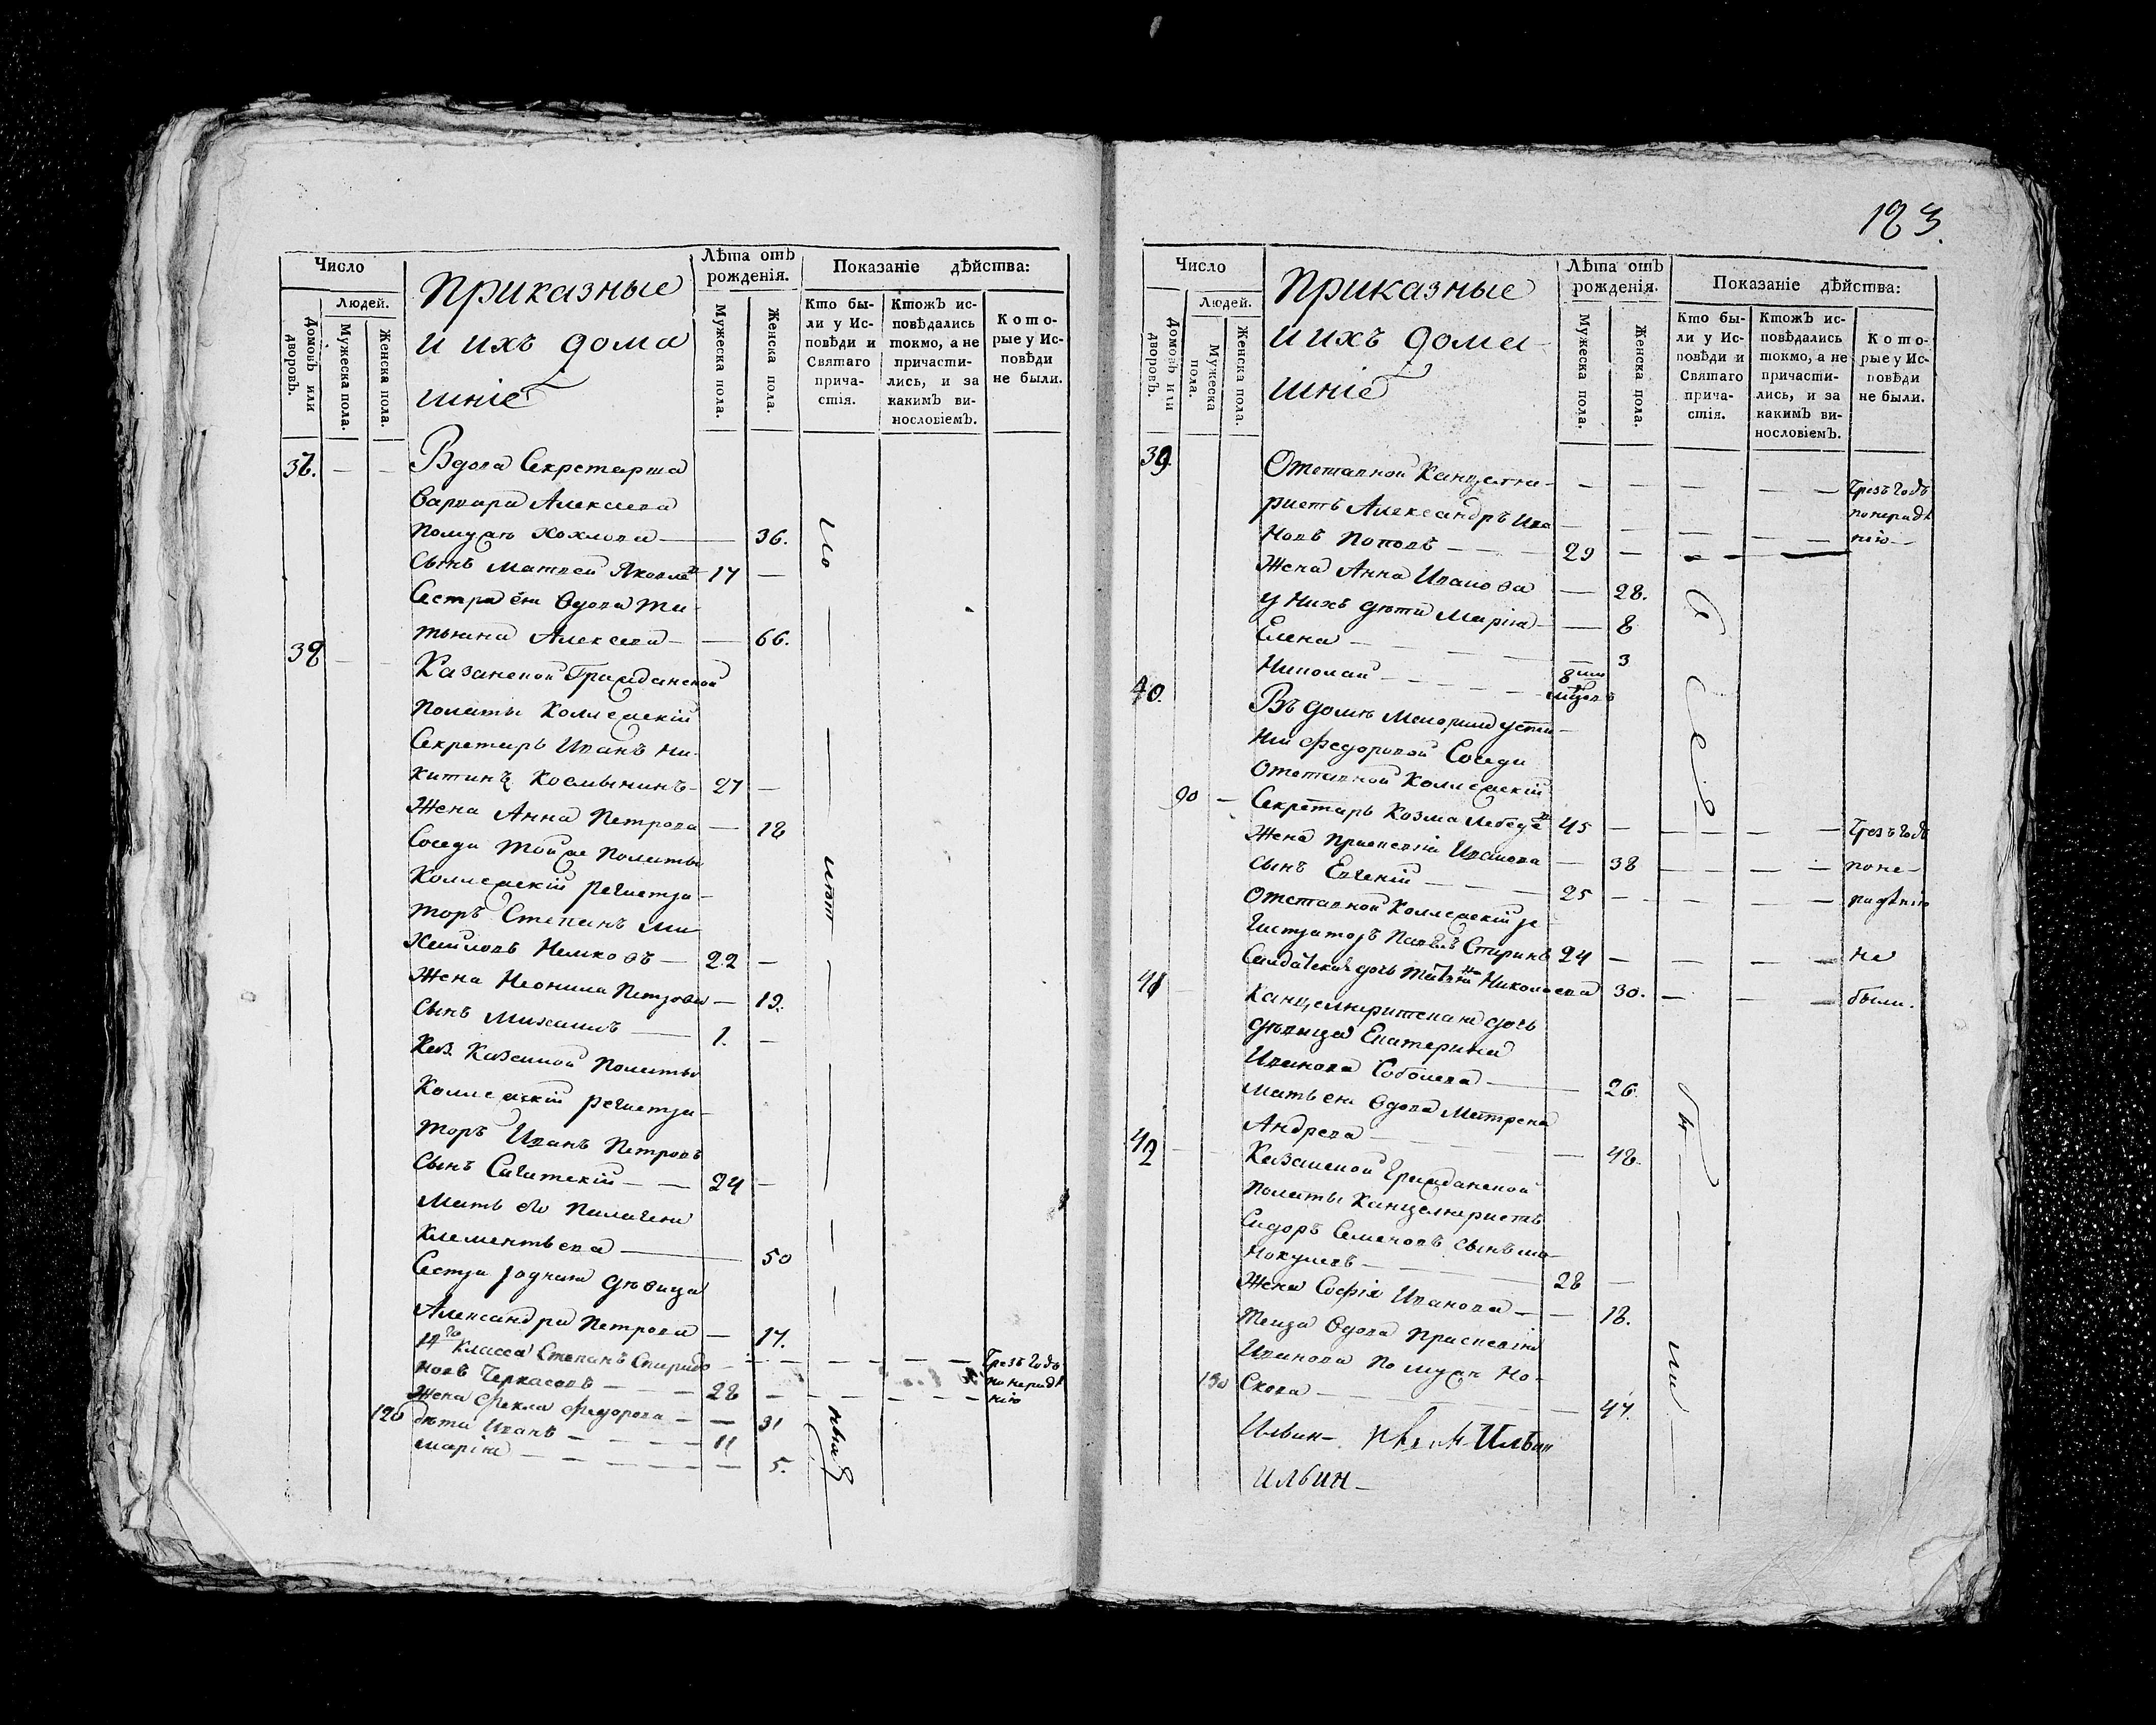 123.
Число
Людей.
Домовъ или дворовъ.
Мужеска пола.
Женска пола.
Приказные
и ихъ дома
шніе
Лѣта отъ рожденія.
Мужеска пола.
Женска пола.
Показаніе дѣйства:
Кто были у Исповѣди и Святаго причастія.
Ктожъ исповѣдались токмо, а не причастились, и за какимъ винословіемъ.
Которые у Исповѣди не были.
37. — — Вдова Секретарша
Варвара Алексеева
по мужѣ Хохлова — 36.
Сынъ Матвей Яковлевъ 17 —
Сестра ея вдова Та
тьяна Алексеева — — 66.
38 — — Казанской Гражданской
Полаты Коллежскій
Секретарь Иванъ Ни-
китинъ Космынинъ — 27 —
Жена Анна Петрова — 18
Соседи той же Полаты
Коллежскій регистра-
торъ Степанъ Ми
хайловъ Немковъ — 22 —
Жена Неонила Петрова — 19.
Сынъ Михаилъ — 1. —
Каз. Казенной Полаты
Коллежскій регистра-
торъ Иванъ Петровъ
сынъ — — 24 —
Мать его Палагея
Клементьева — 50
Сестра родная девица
Александра Петрова — 17.
14го Класса Степанъ Спиридо — — — Чрезъ годъ
новъ Черкасовъ — — 28 — — — по нераде
Жена Фекла Федорова — — 31 — нію
120 дети Иванъ — — 11
Марія — — — 5.
Число
Людей.
Домовъ или дворовъ.
Мужеска пола.
Женска пола.
Приказные
и ихъ дома
шніе
Лѣта отъ рожденія.
Мужеска пола.
Женска пола.
Показаніе дѣйства:
Кто были у Исповѣди и Святаго причастія.
Ктожъ исповѣдались токмо, а не причастились, и за какимъ винословіемъ.
Которые у Исповѣди не были.
39. Отставной Канцеля- — — — Чрезъ годъ
ристъ Александръ Ива — — — по нераде
новъ Поповъ — — 29 — — — нію —
Жена Анна Иванова — 28.
у нихъ дети Марія — — 8
Елена — — — 3
Николай — — — 8ми
40. Въ доме Маіорши Усти-
ніи Федоровой Соседи
Отставной Коллежскій
90 — Секретарь Козма Лебедевъ 45 — — — Чрезъ годъ
Жена Прасковія Иванова — 38 — — — по не-
сынъ Евгеній — — 25 — — — радѣнію
Отставной Коллежскій ре
гистраторъ Павелъ Стиринъ 24 — — — не
Салдатская дочь Татьяна Николаева 30. — — — были.
41 — Канцеляритская дочь
девица Екатерина
Иванова Соболева — — 26
Мать ея вдова Матрена
Андреева — — 48.
42 — — Казанской Гражданской
Полаты Канцеляристъ
Сидоръ Семеновъ сынъ
28 —
Жена Софія Иванова — — 18.
Теща вдова Прасковія
Иванова по мужѣ Но-
130 скова — — 47.
Ильин — Ильин
ильин —